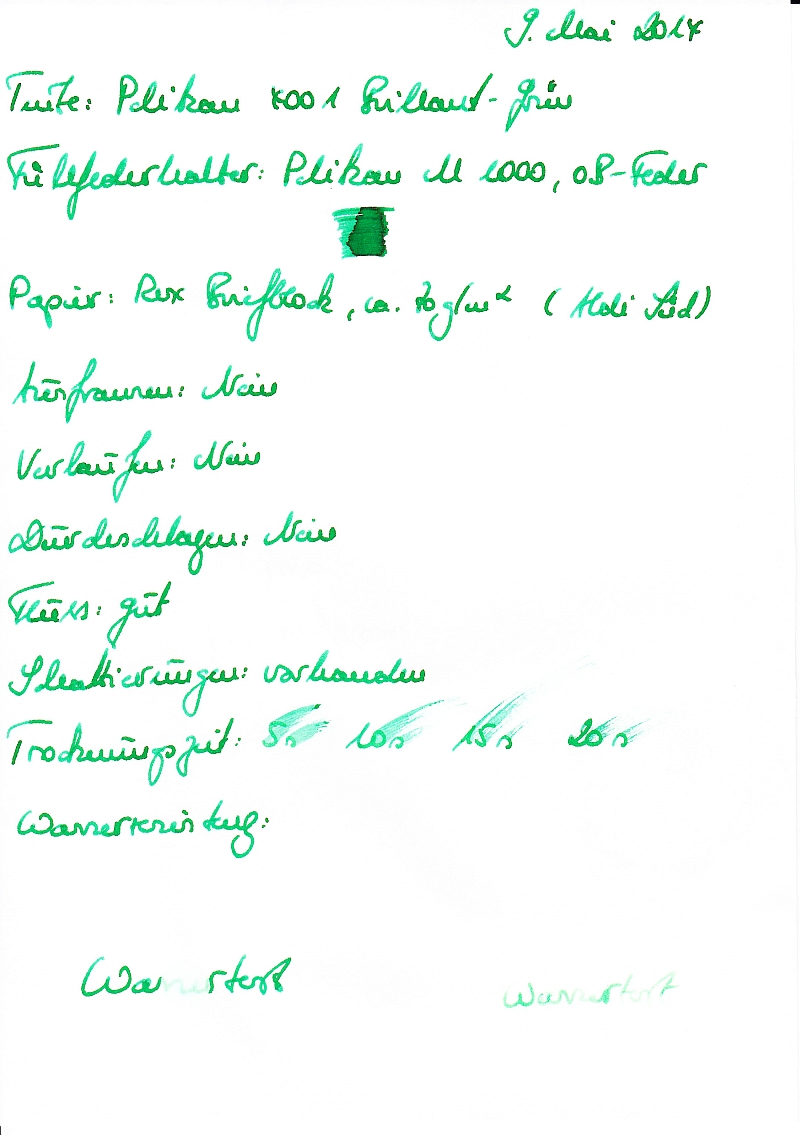 9. Mai 2014
Tinte: Pelikan 4001 Brillant-Grün
Füllfederhalter: Pelikan M 1000, OB-Feder
Papier: Rex Briefblock, ca. 70 g/m² (Aldi Süd)
Ausfransen: Nein
Verlaufen: Nein
Durchschlagen: Nein
Fluss: gut
Schattierungen: vorhanden
Trocknungszeit: 5s 10s 15s 20s
Wasserresistenz:
Wassertest Wassertest